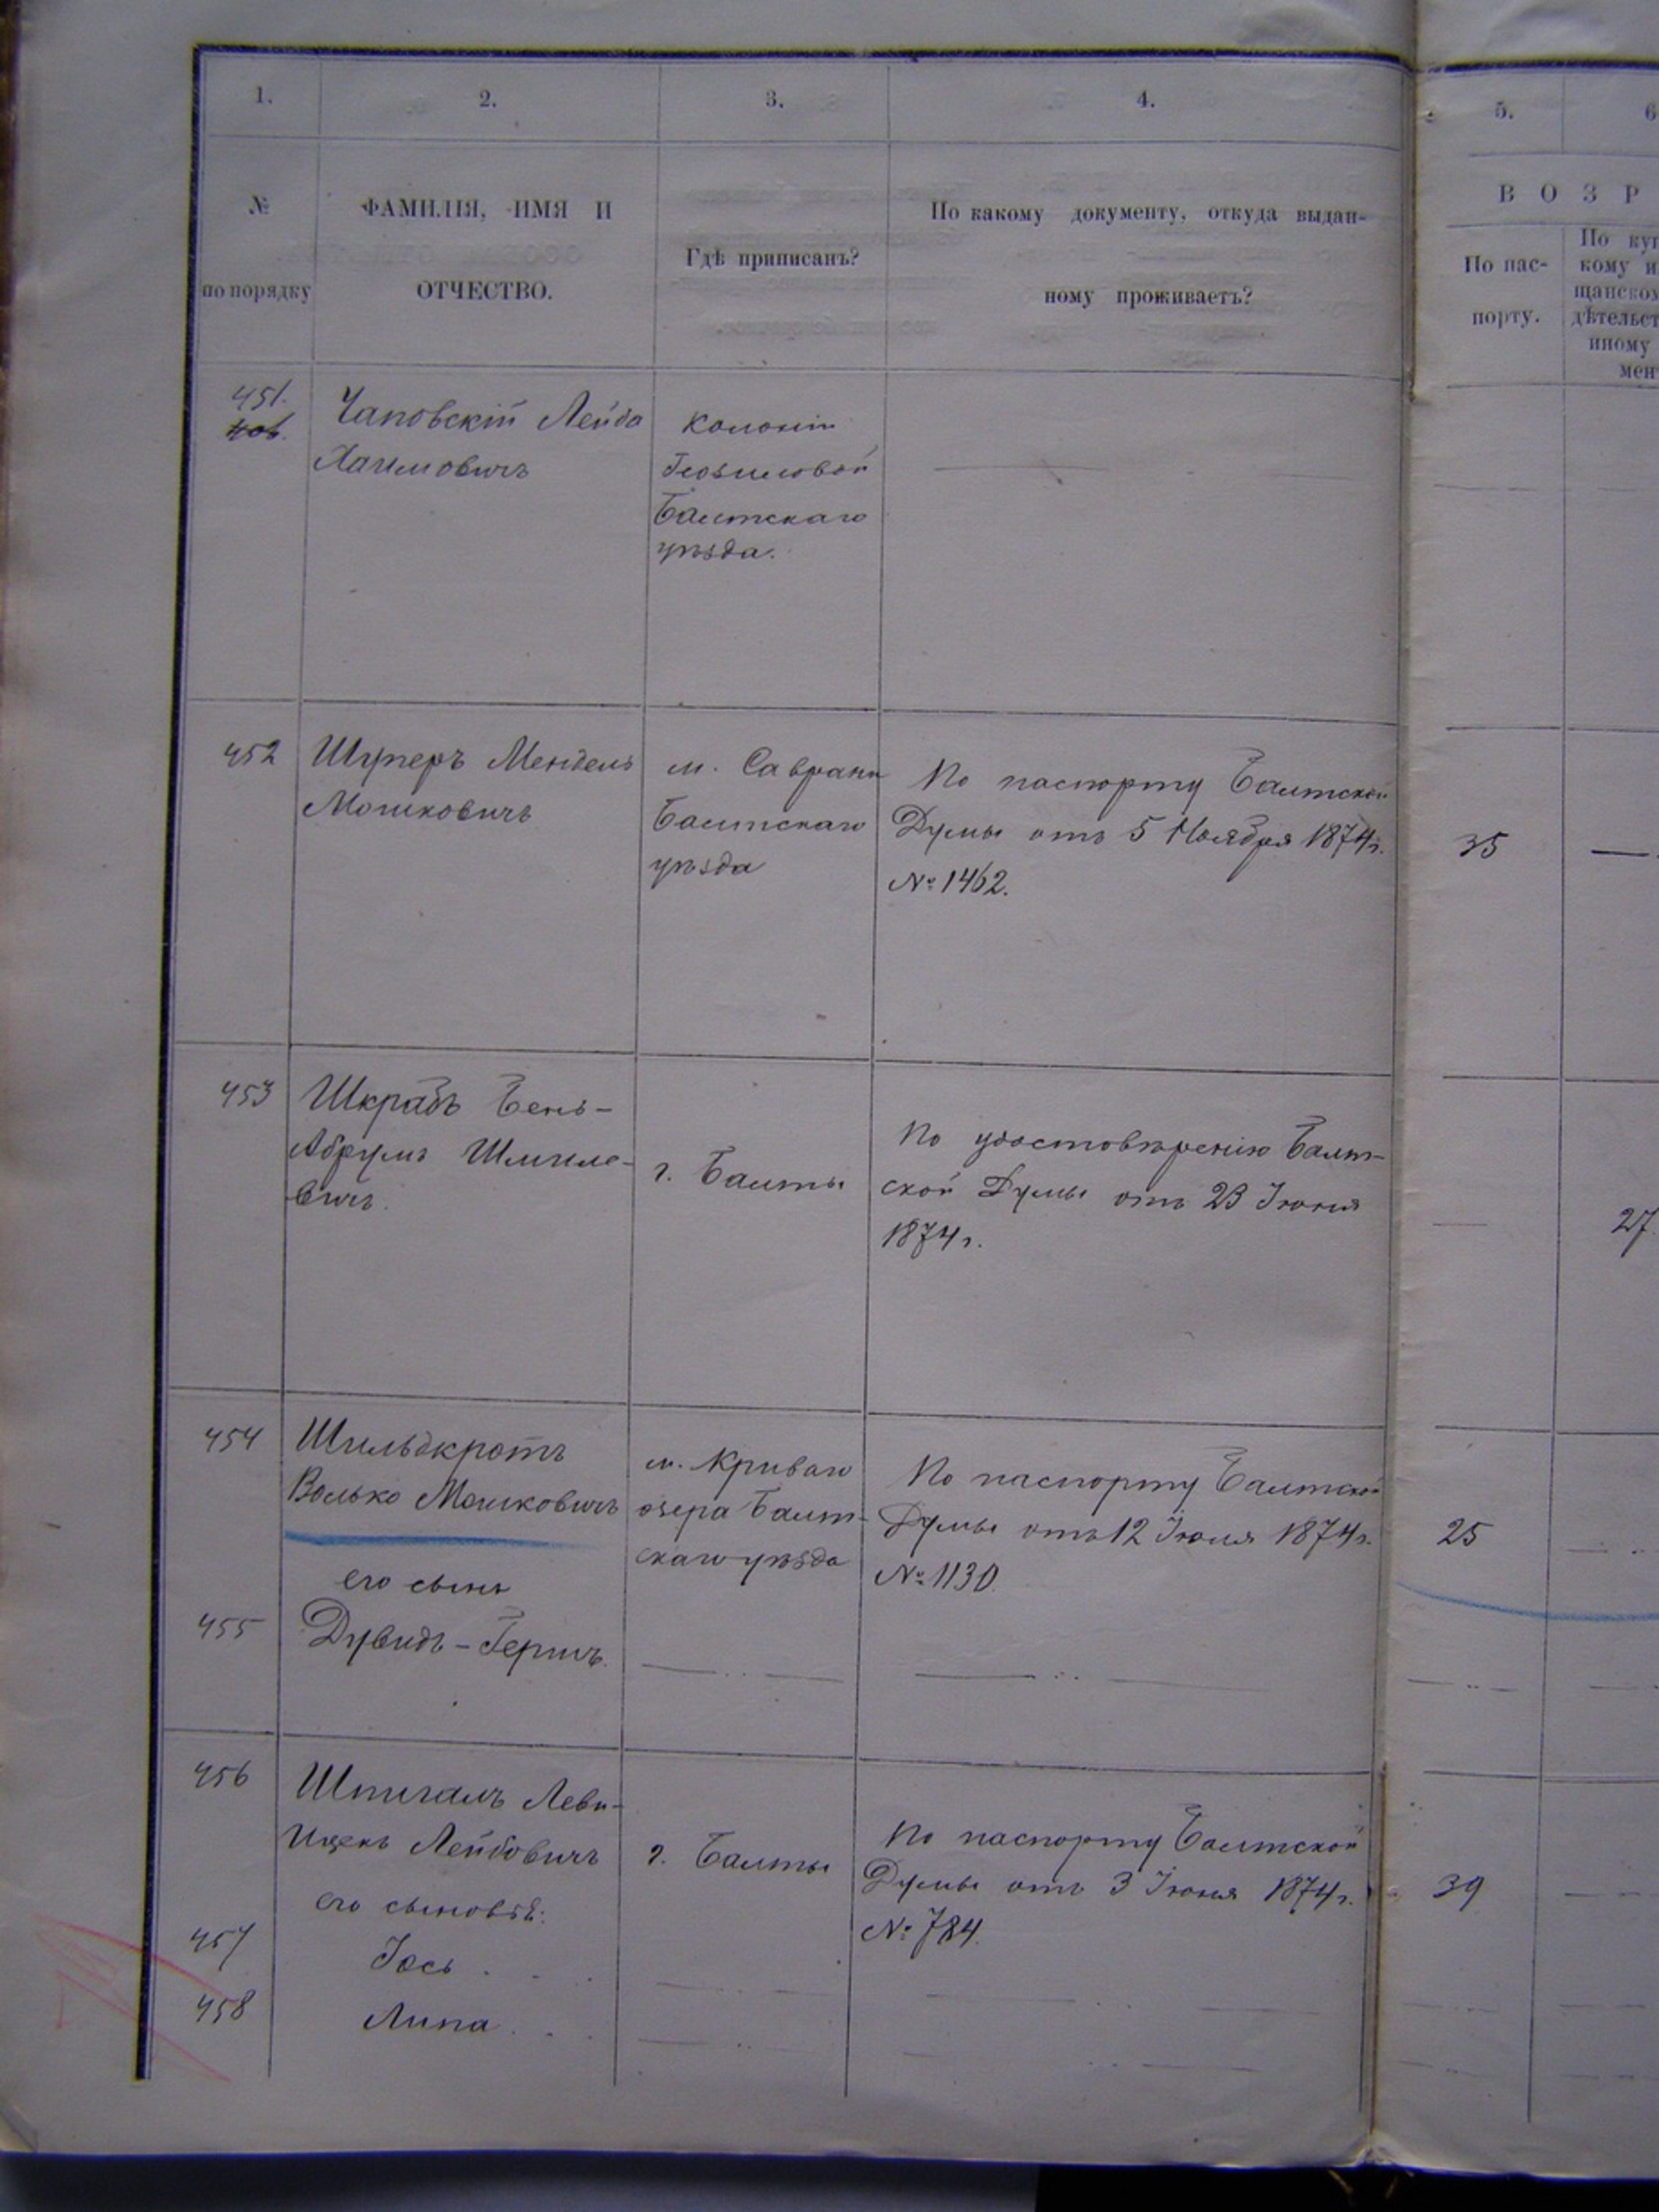 1. 2. 3. 4. 5. 6
№ по порядку
ФАМИЛІЯ, ИМЯ И
ОТЧЕСТВО.
Гдѣ приписанъ?
По какому документу, откуда выдан-
ному проживаетъ?
ВОЗР
По пас-
порту.
По куп
кому и
щанском
дѣтельст
иному
мен
451.
Чаповскій Лейба
Хаимовичъ
Колоніи
Балтскаго
уѣзда.
452
Шуперъ Мендель
Мошковичъ
м. Саврани
Балтскаго
уѣзда
По паспорту Балтской
Думы отъ 5 Ноября 1874 г.
№ 1462.
35
453
Шкрабъ Бень-
Абрумъ Шмиле-
вичъ.
г. Балты
По удостовѣренію Балт-
ской Думы отъ 23 Іюня
1874 г.
27
454
Шильдкротъ
Волько Мошковичъ
м. Криваго
озера Балт-
скаго уѣзда
По паспорту Балтской
Думы отъ 12 Іюля 1874 г.
№ 1130.
25
его сынъ
455
Дувидъ-Гершъ.
456
Шпигалъ Леви-
Ицекъ Лейбовичъ
г. Балты
По паспорту Балтской
Думы отъ 3 Іюня 1874 г.
№ 784.
39
его сыновья:
457
Іось . . .
458
Липа . . .